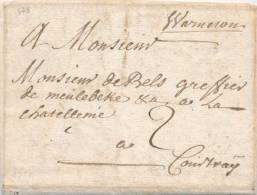 Warneton
A Monsieur
Monsieur de Bels greffier
de meulebeke &a a la
chatellenie
2
a
Courtray